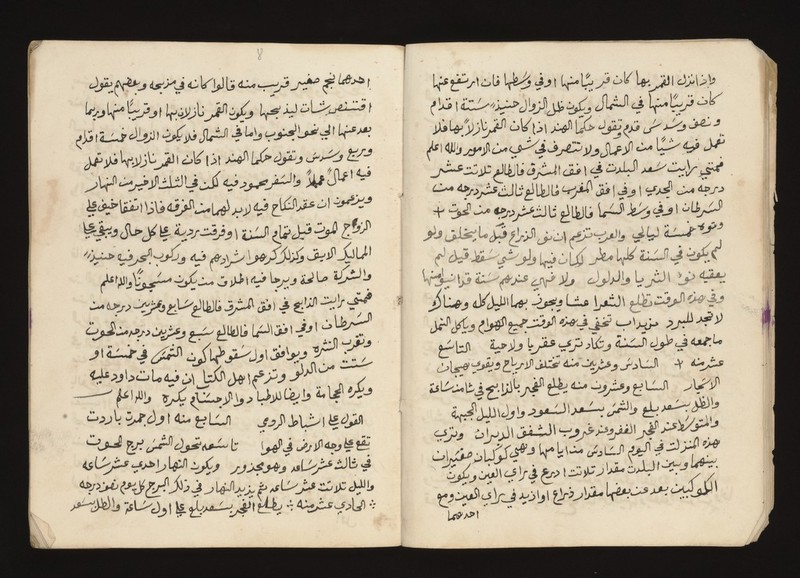 واذا نزل القمر بها كان قريبًا منها او في وسطها فان ارتفع عنها
كان قريبًا منها في الشمال ويكون ظل الزوال حنيذ ستة اقدام
ونصف وسدس قدم وتقول حكما الهند اذا كان القمر نازلاً بها فلا
تعمل فيه شيًا من الاعمال ولا تتصرف في شي من الامور والله اعلم
فمتي رايت سعد البلدت في افق المشرق فالطالع ثلاثت عشر
درجه من الجدي او في افق المغرب فالطالع ثالث عشر درجه من
السرطان او في وسط السما فالطالع ثالث عشر درجه من الحوت
ونوه خمسة ليالي والعرب تزعم ان نو الذراع قبل ما يخلف ولو
لم يكون في السنة كلها مطر لكان فيها ولو شي سقط قيل لم
يعقبه نو الثريا والدلول ولا في عندهم سنة
وفي هذه الوقت تطلع الشعرا عشا ويجوز بها الليل كله وهناكو
لا تجد للبرد مزيد اب تختفي في هذه الوقت جميع الهوام وياكل النمل
ما جمعه في طول السنة وتكاد تري عقربا ولا حية التاسع
عشر منه السادس وعشرين منه تختلف الارياح ويقوي هيجان
الاشجار السابع وعشرون منه يطلع الفجر بالذابح في ثامن ساعة
والظل بسعد بلع والشمس بسعد السعود واول الليل الجبهة
والمتوسط عند الفجر الغفر وعند غروب الشفق الدبران وتري
هذه المنزلت في اليوم السادس من ايامها وهي كوكبان صغيران
بينهما وبين البلدت مقدار ثلاثت ادرع في راي العين ويكون
الكوكبين بعد عن بعضها مقدار ذراع او ازيد في راي العين ومع
احدهما
٨
احدهما نجم صغير قريب منه قالوا كانه في مذبحه وبعضهم يقول
اقتنص شات ليذبحها ويكون القمر نازلا بها او قريبًا منها وربما
بعد عنها الي نحو الجنوب واما في الشمال فلا يكون الزوال خمسة اقدام
وربع وسدس وتقول حكما الهند اذا كان القمر نازلا بها فلا تعمل
فيه اعمال عملاً والسفر محمود فيه لكن في الثلث الاخير من النهار
ويزعمون ان عقد النكاح فيه لابد لهما من الفرقه فاذا اتفقا خيف علي
الزواج الموت قبل تمام السنة او فرقت ردية علي كل حال ويبقي علي
المماليك الابق وكذلك كرهوا شرادهم فيه وركوب البحر فيه حنيذ
والشركة صالحة ويرجا فيه اطلاق من يكون مسجونًا والله اعلم
فمتي رايت الذابح في افق المشرق فالطالع سابع وعشرين درجه من
السرطان او في افق السما فالطالع سبع وعشرين درجه من الحوت
وتغرب النثره ويوافق اول سقوطها كون الشمس في خمسة او
ستت من الدلو وتزعم اهل الكتاب ان فيه مات داود عليه
ويكره الحجامة وايضا للاطبا دوا الاجسام يكره والله اعلم
القول علي اشباط الرومي السابع منه اول جمرت باردت
تقع علي وجه الارض في الهوا تاسعه تحول الشمس برج الحوت
في ثالث عشر ساعه وهو مجذور ويكون النهار احدي عشر ساعه
والليل ثلاثت عشر ساعه ثم يزيد النهار في ذلك البرج كل يوم نصف درجه
الحادي عشر منه يطلع الفجر بسعد بلع علي اول ساعة والظل بسعد